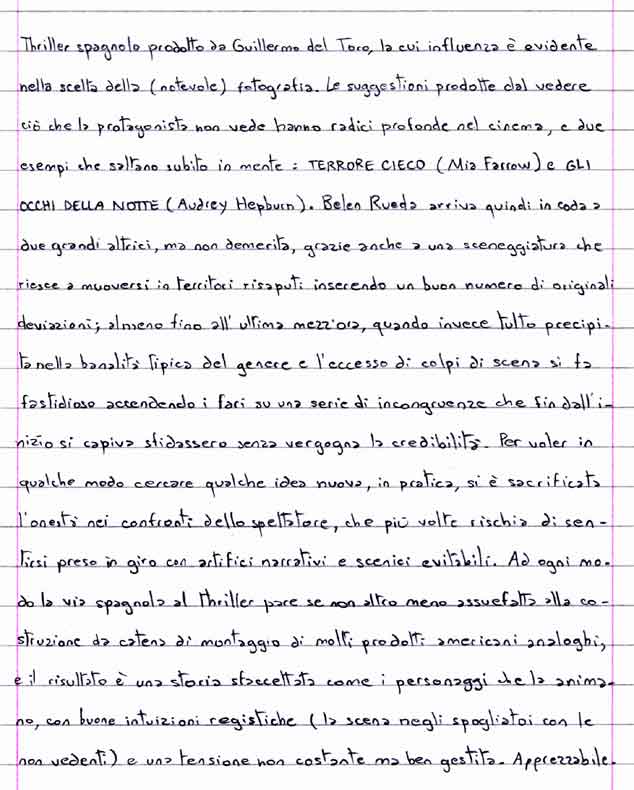 Thriller spagnolo prodotto da Guillermo del Toro, la cui influenza è evidente
nella scelta della (notevole) fotografia. Le suggestioni prodotte dal vedere
ciò che la protagonista non vede hanno radici profonde nel cinema, e due
esempi che saltano subito in mente : TERRORE CIECO (Mia Farrow) e GLI
OCCHI DELLA NOTTE (Audrey Hepburn). Belen Rueda arriva quindi in coda a
due grandi attrici, ma non demerita, grazie anche a una sceneggiatura che
riesce a muoversi in territori risaputi inserendo un buon numero di originali
deviazioni; almeno fino all'ultima mezz'ora, quando invece tutto precipi-
ta nella banalità tipica del genere e l'eccesso di colpi di scena si fa
fastidioso accendendo i fari su una serie di incongruenze che fin dall'i-
nizio si capiva sfidassero senza vergogna la credibilità. Per voler in
qualche modo cercare qualche idea nuova, in pratica, si è sacrificata
l'onestà nei confronti dello spettatore, che più volte rischia di sen-
tirsi preso in giro con artifici narrativi e scenici evitabili. Ad ogni mo-
do la via spagnola al thriller pare se non altro meno assuefatta alla co-
struzione da catena di montaggio di molti prodotti americani analoghi,
e il risultato è una storia sfaccettata come i personaggi che la anima-
no, con buone intuizioni registiche (la scena negli spogliatoi con le
non vedenti) e una tensione non costante ma ben gestita. Apprezzabile.